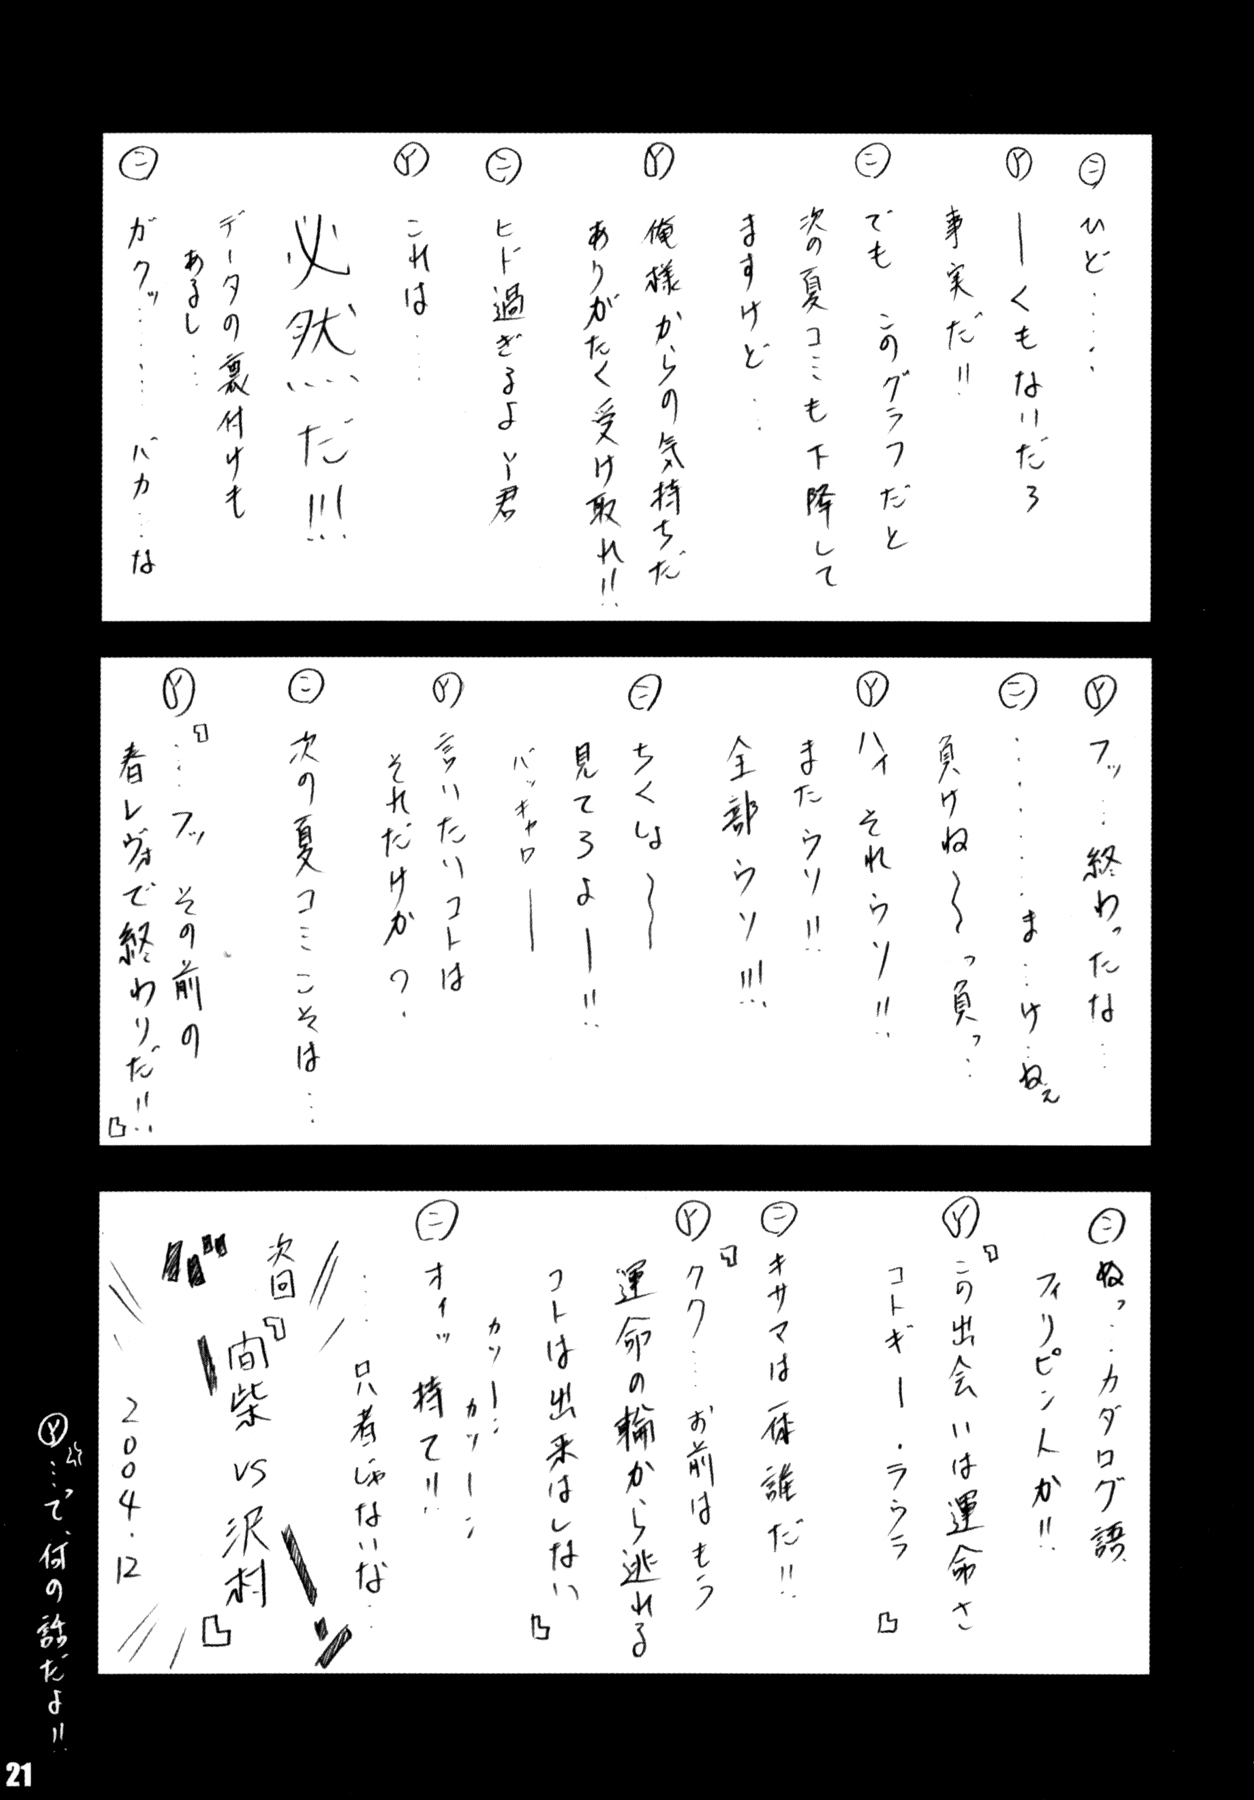 ㊁ ひど……
Ⓨ ーくもないだろ
事実だ!!
㊁ でも このグラフだと
次の夏コミも下降して
ますけど…
Ⓨ 俺様からの気持ちだ
ありがたく受け取れ!!
㊁ ヒド過ぎるよY君
Ⓨ これは……
必然だ!!!
データの裏付けも
あるし…
㊁ ガクッ…… バカ…な
Ⓨ フッ…終わったな…
㊁ ………ま…け…ねぇ
負けね〜〜っ負っ…
Ⓨ ハイ それウソ!!
またウソ!!
全部ウソ!!!
㊁ ちくしょ〜〜
見てろよー!!
バッキャロー
Ⓨ 言いたいコトは
それだけか?
㊁ 次の夏コミこそは…
Ⓨ 『……フッ その前の
春レヴォで終わりだ!!』
㊁ ぬっ…カダログ語
フィリピン人か!!
Ⓨ 『この出会いは運命さ
コトギー・ララ』
㊁ キサマは一体誰だ!!
Ⓨ 『クク……お前はもう
運命の輪から逃れる
コトは出来はしない』
カツーン
カツーン
㊁ オイッ 待て!!
……只者じゃないな…
次回
『間柴 VS 沢村』
2004.12
Ⓨ …って、何の話だよ!!
21